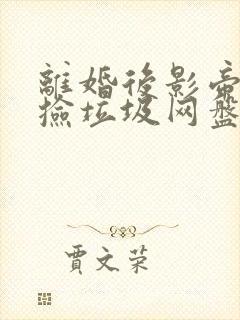 離婚後影帝
撿垃圾网盤
賈文荣